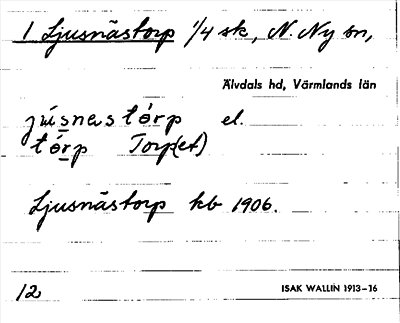 1 Ljusnästorp 1/4 sk, N. Ny sn,
Älvdals hd, Värmlands län
jʉ́snastòrp el.
tórp Torp(et)
Ljusnästorp kb 1906.
12 ISAK WALLIN 1913-16